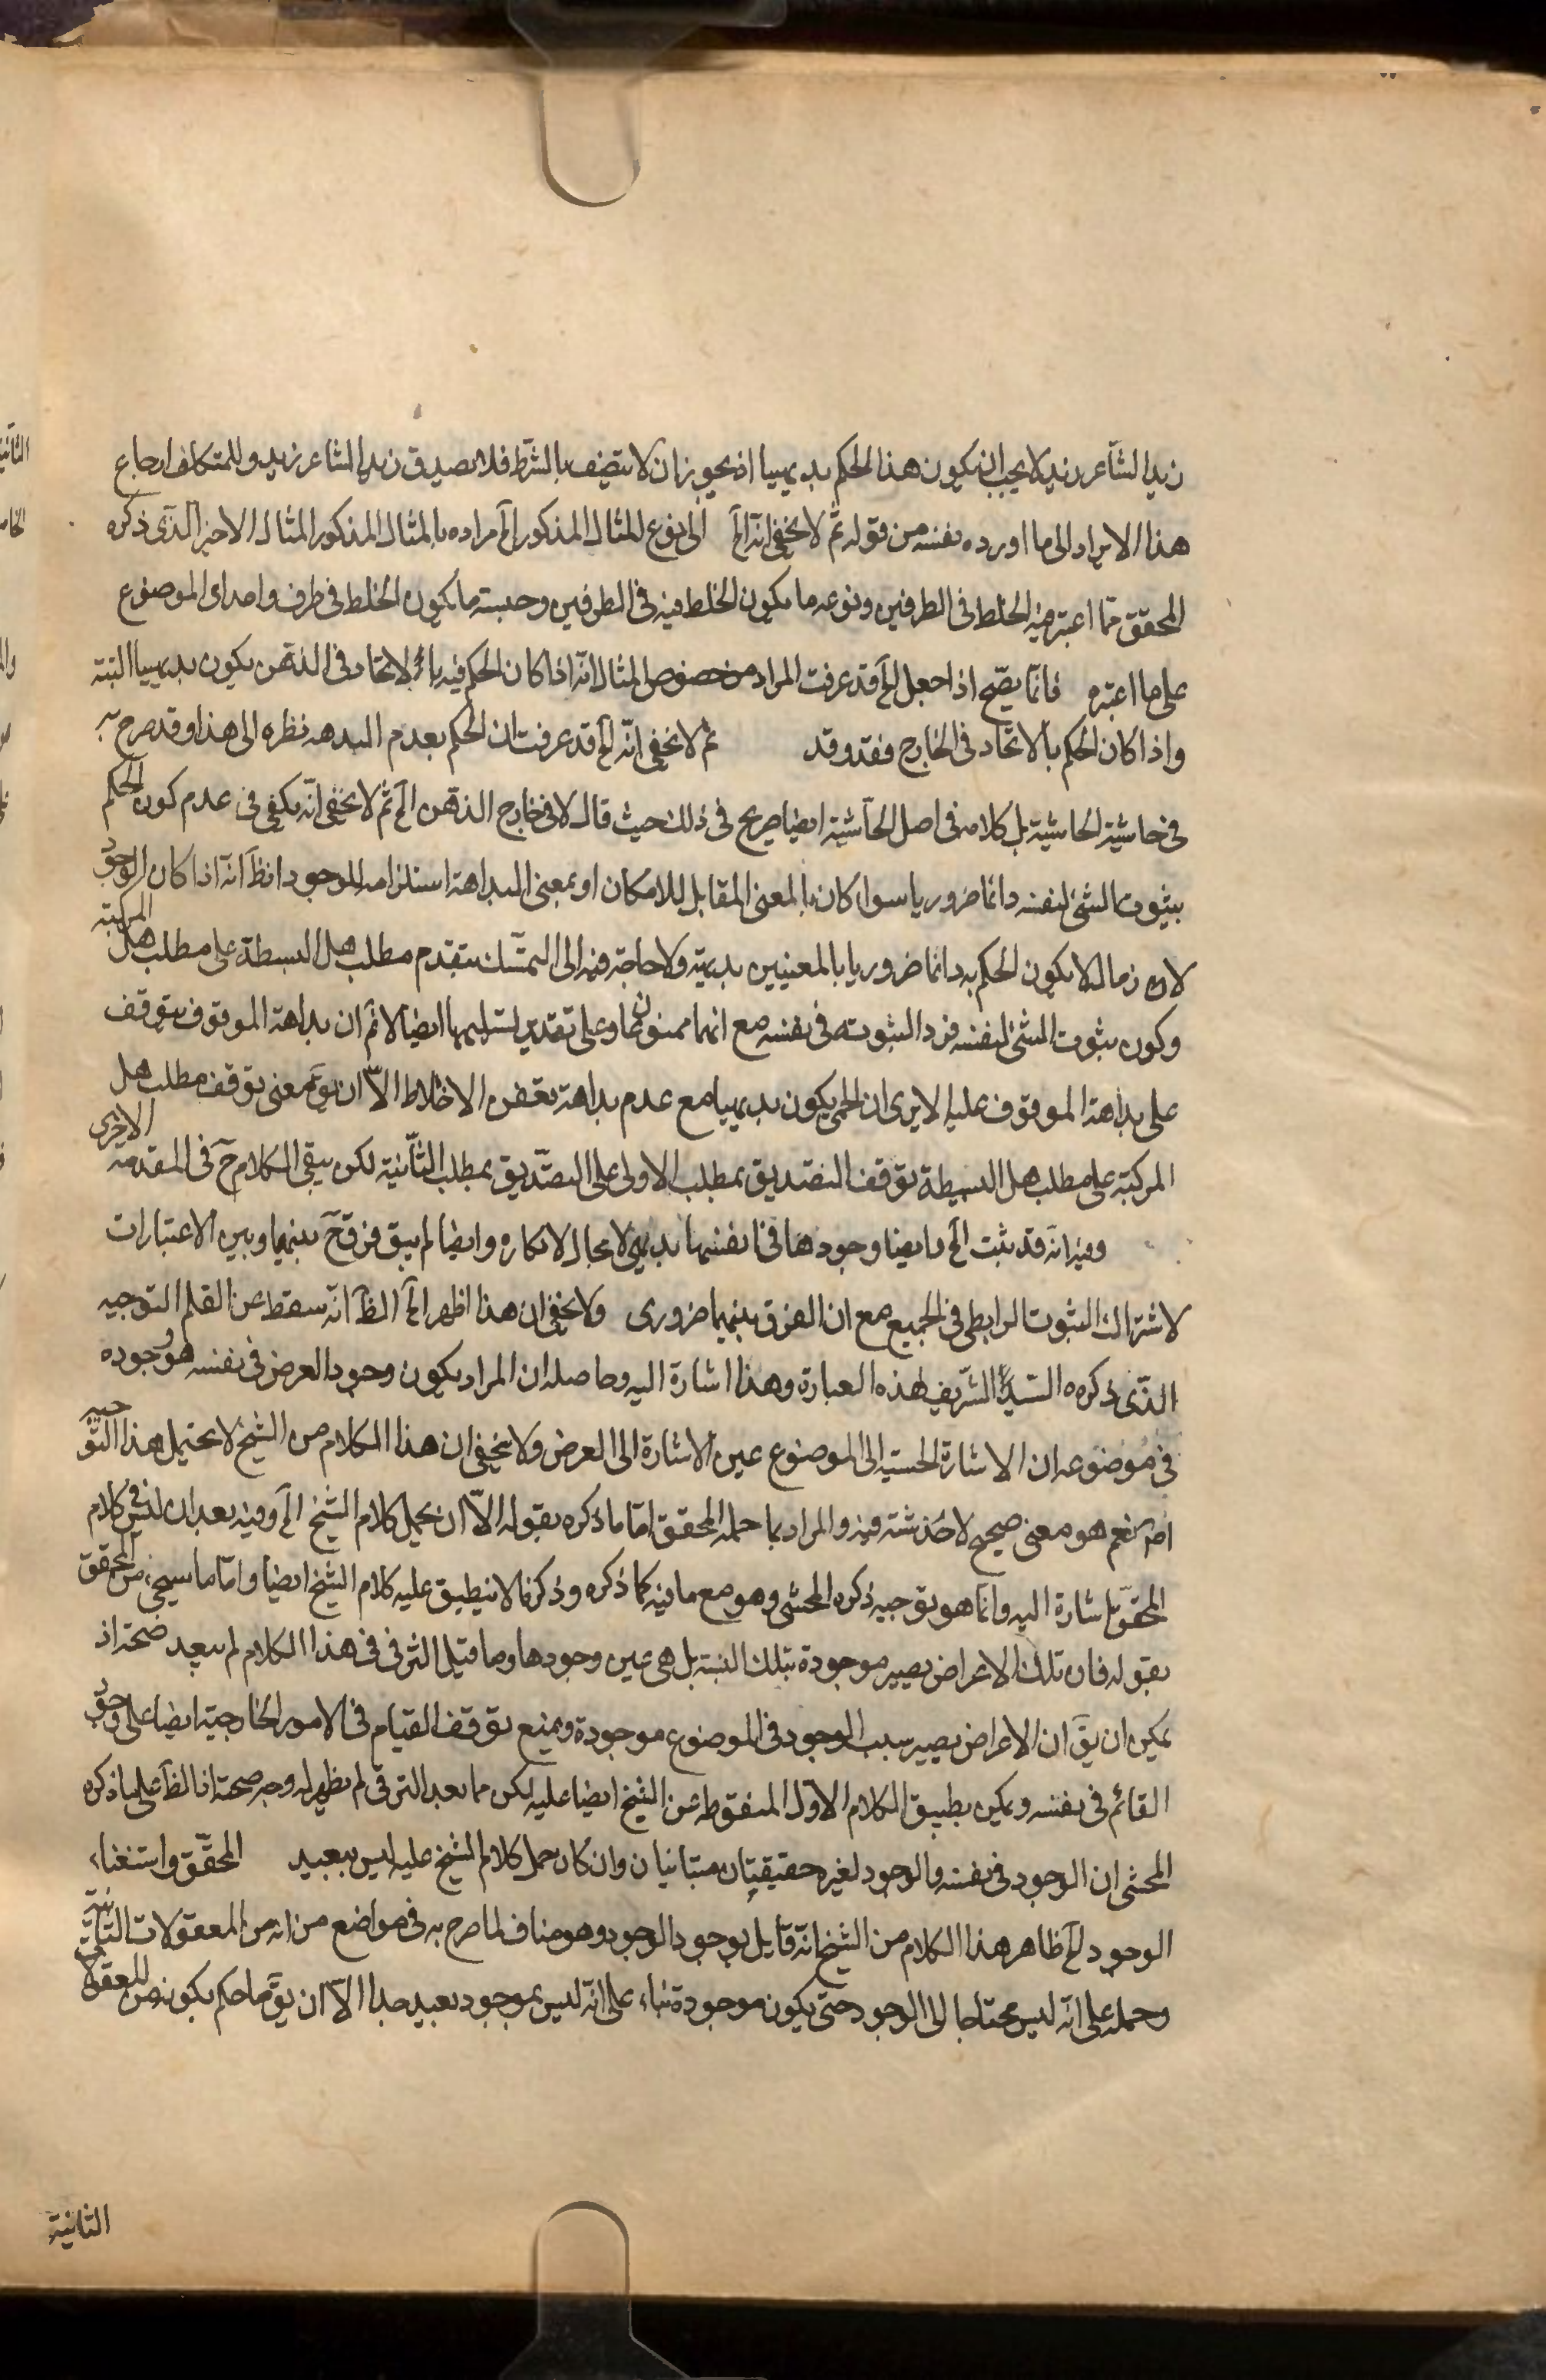 زيد الشاعر زيد لا يجب ان يكون هذا الحكم بديهيا اذ يجوز ان لا يتصف بالشرط فلا يصدق زيد الشاعر زيد وللمتكلف ارجاع
هذا الايراد الى ما اورده بنفسه من قوله ثم لا يخفى انه الخ الى نوع المثال المذكور الخ مراده بالمثال المذكور المثال الاخير الذى ذكره
المحقق مما اعتبر فيه الخلط فى الطرفين ونوعه ما يكون الخلط فيه فى الطرفين وجنسه ما يكون الخلط فى طرف واحد اى الموضوع
على ما اعتبره فانما يصح اذا جعل الخ قد عرفت المراد من خصوص المثال انه اذا كان الحكم فيه بالاتحاد فى الذهن يكون بديهيا البتة
واذا كان الحكم بالاتحاد فى الخارج فقد وقد ثم لا يخفى انه الخ قد عرفت ان الحكم بعدم البداهة نظره الى هذا وقد صرح به
فى حاشية الحاشية بل كلامه فى اصل الحاشية ايضا صريح فى ذلك حيث قال لا فى خارج الذهن الخ ثم لا يخفى انه يكفى فى عدم كون الحكم
بثبوت الشئ لنفسه دائما ضروريا سواء كان بالمعنى المقابل للامكان او بمعنى البداهة استلزامه للوجود اذ ظ انه اذا كان الوجود
لازما لا يكون الحكم به دائما ضروريا بالمعنيين بديهية ولا حاجة فيه الى التمسك بتقدم مطلب هل البسيطة على مطلب هل المركبة
وكون ثبوت الشئ لنفسه فرد الثبوته فى نفسه مع انهما ممنوعان وعلى تقدير تسليمهما ايضا لا نم ان بداهة الموقوف يتوقف
على بداهة الموقوف عليه الا يرى ان الحمى يكون بديهيا مع عدم بداهة تعفن الاخلاط الا ان يق معنى توقف مطلب هل
المركبة على مطلب هل البسيطة توقف التصديق بمطلب الاولى على التصديق بمطلب الثانية لكن يبقى الكلام ح فى المقدمة الاخرى
وفيه انه قد ثبت الخ وايضا وجودها فى انفسها بديهى لا مجال لانكاره وايضا لم يبق فرق ح بينهما وبين الاعتبارات
لاشتراك الثبوت الرابطى فى الجميع مع ان الفرق بينهما ضرورى ولا يخفى ان هذا اظهر الخ الظ انه سقط عن القلم التوجيه
الذى ذكره السيد الشريف لهذه العبارة وهذا اشارة اليه وحاصله ان المراد بكون وجود العرض فى نفسه هو وجوده
فى موضوعه ان الاشارة الحسية الى الموضوع عين الاشارة الى العرض ولا يخفى ان هذا الكلام من الشيخ لا يحتمل هذا التوجيه
اصلا نعم هو معنى صحيح لا خدشة فيه والمراد بما حمله المحقق اما ما ذكره بقوله الا ان يحمل كلام الشيخ الخ وفيه بعد ان ليس فى كلام
المحقق اشارة اليه وانما هو توجيه ذكره المحشى وهو مع ما فيه كما ذكره وذكرنا لا ينطبق عليه كلام الشيخ ايضا واما ما سيجئ من المحقق
بقوله فان تلك الاعراض يصير موجودة بتلك النسبة بل هى عين وجودها وما قيل الترقى فى هذا الكلام لم يبعد صحته اذ
يمكن ان يق ان الاعراض يصير بسبب الوجود فى الموضوع موجودة ويمنع توقف القيام فى الامور الخارجية ايضا على وجود
القائم فى نفسه ويمكن تطبيق الكلام الاول المنقوط عن الشيخ ايضا عليه لكن ما بعد الترقى لم يظهر له وجه صحة اذ الظ على ما ذكره
المحشى ان الوجود فى نفسه والوجود لغيره حقيقيتان متباينان وان كان حمل كلام الشيخ عليه ليس ببعيد المحقق واستغناء
الوجود الخ ظاهر هذا الكلام من الشيخ انه قايل بوجود الوجود وهو مناف لما صرح به فى مواضع من انه من المعقولات الثانية
وحمله على انه ليس محتاجا الى الوجود حتى يكون موجودة بناء على انه ليس بموجود بعيد جدا الا ان يق ما حكم بكونه من المعقولات
الثانية